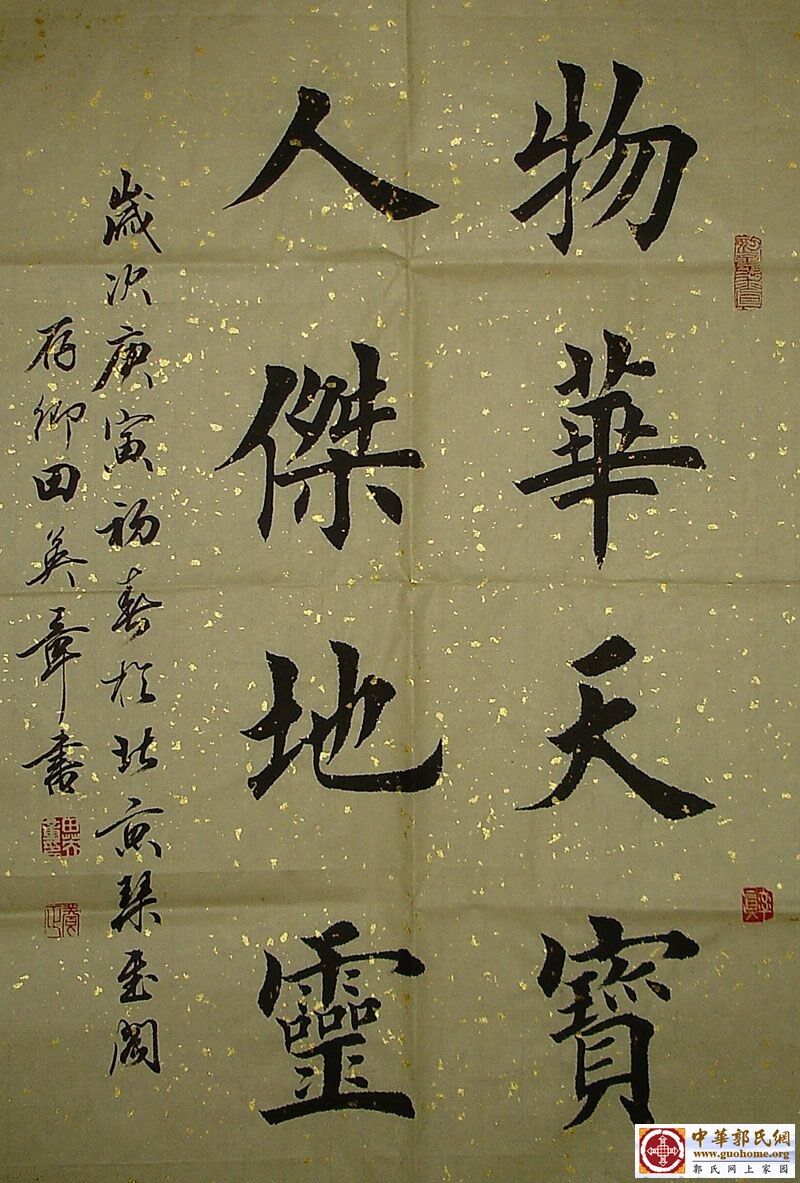 物華天寶
人傑地靈
歲次庚寅初春於北京琹玉閣
存卿田英章書
中華郭氏網
www.guohome.org
郭氏网上家园